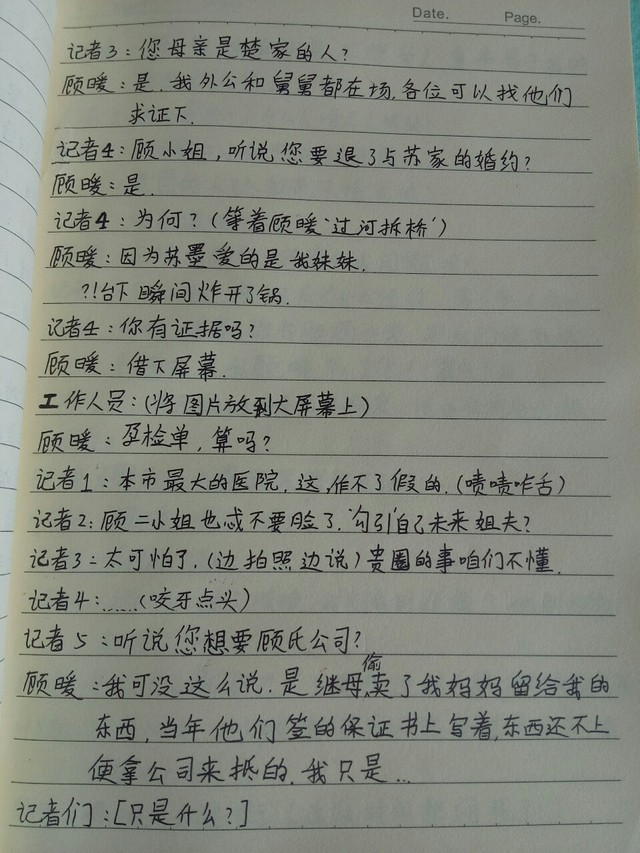 Date.     Page.
记者3：您母亲是楚家的人？
顾暖：是.我外公和舅舅都在场,各位可以找他们
求证下.
记者4：顾小姐，听说您要退了与苏家的婚约？
顾暖：是.
记者4：为何？(等着顾暖‘过河拆桥’)
顾暖：因为苏墨爱的是我妹妹.
?!台下瞬间炸开了锅.
记者4：你有证据吗？
顾暖：借下屏幕.
工作人员：(将图片放到大屏幕上)
顾暖：孕检单，算吗？
记者1：本市最大的医院，这,作不了假的.(啧啧咋舌)
记者2：顾二小姐也忒不要脸了.‘勾引’自己未来姐夫？
记者3：太可怕了.(边拍照边说)贵圈的事咱们不懂.
记者4：……(咬牙点头)
记者5：听说您想要顾氏公司？
顾暖：我可没这么说.是继母偷卖了我妈妈留给我的
东西，当年他们签的保证书上写着,东西还不上
便拿公司来抵的.我只是…
记者们：[只是什么？]